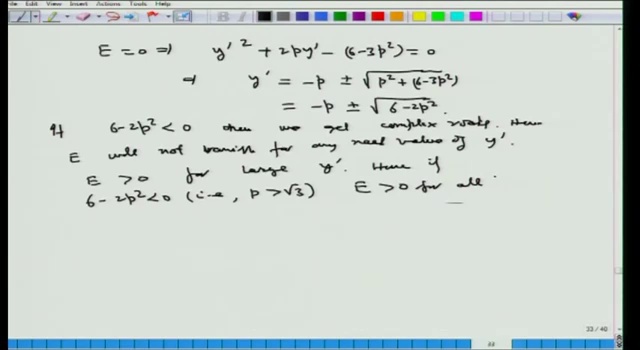 File View Insert Actions Tools Help
E = 0 ⇒ y'² + 2py' − (6−3p²) = 0
⇒ y' = −p ± √p² + (6−3p²)
= −p ± √6−2p²
If 6−2p² < 0 then we get complex roots. Hence
E will not vanish for any real value of y'.
E > 0 for large y'. Hence if
6−2p² < 0 (i.e., p > √3) E > 0 for all
33 / 40
33